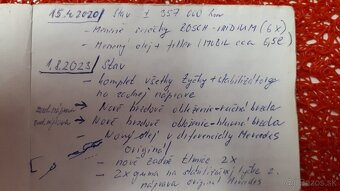 15.4.2020/ Stav 1 357 000 km
- Menené sviečky BOSCH-IRIDIUM (6x)
- Menený olej + filter 1 MOBIL cca 6,5l
1.8.2023 / Stav
- komplet všetky tyčky + stabilizátory
na zadnej náprave
- Nové brzdové obloženie - ručná brzda
- Nové brzdové obloženie - hlavná brzda
- Nový olej v diferenciály Mercedes
Original
- nové zadné tlmice 2x
- 2x guma na stabilizačnej tyčke z.
náprava originál Mercedes